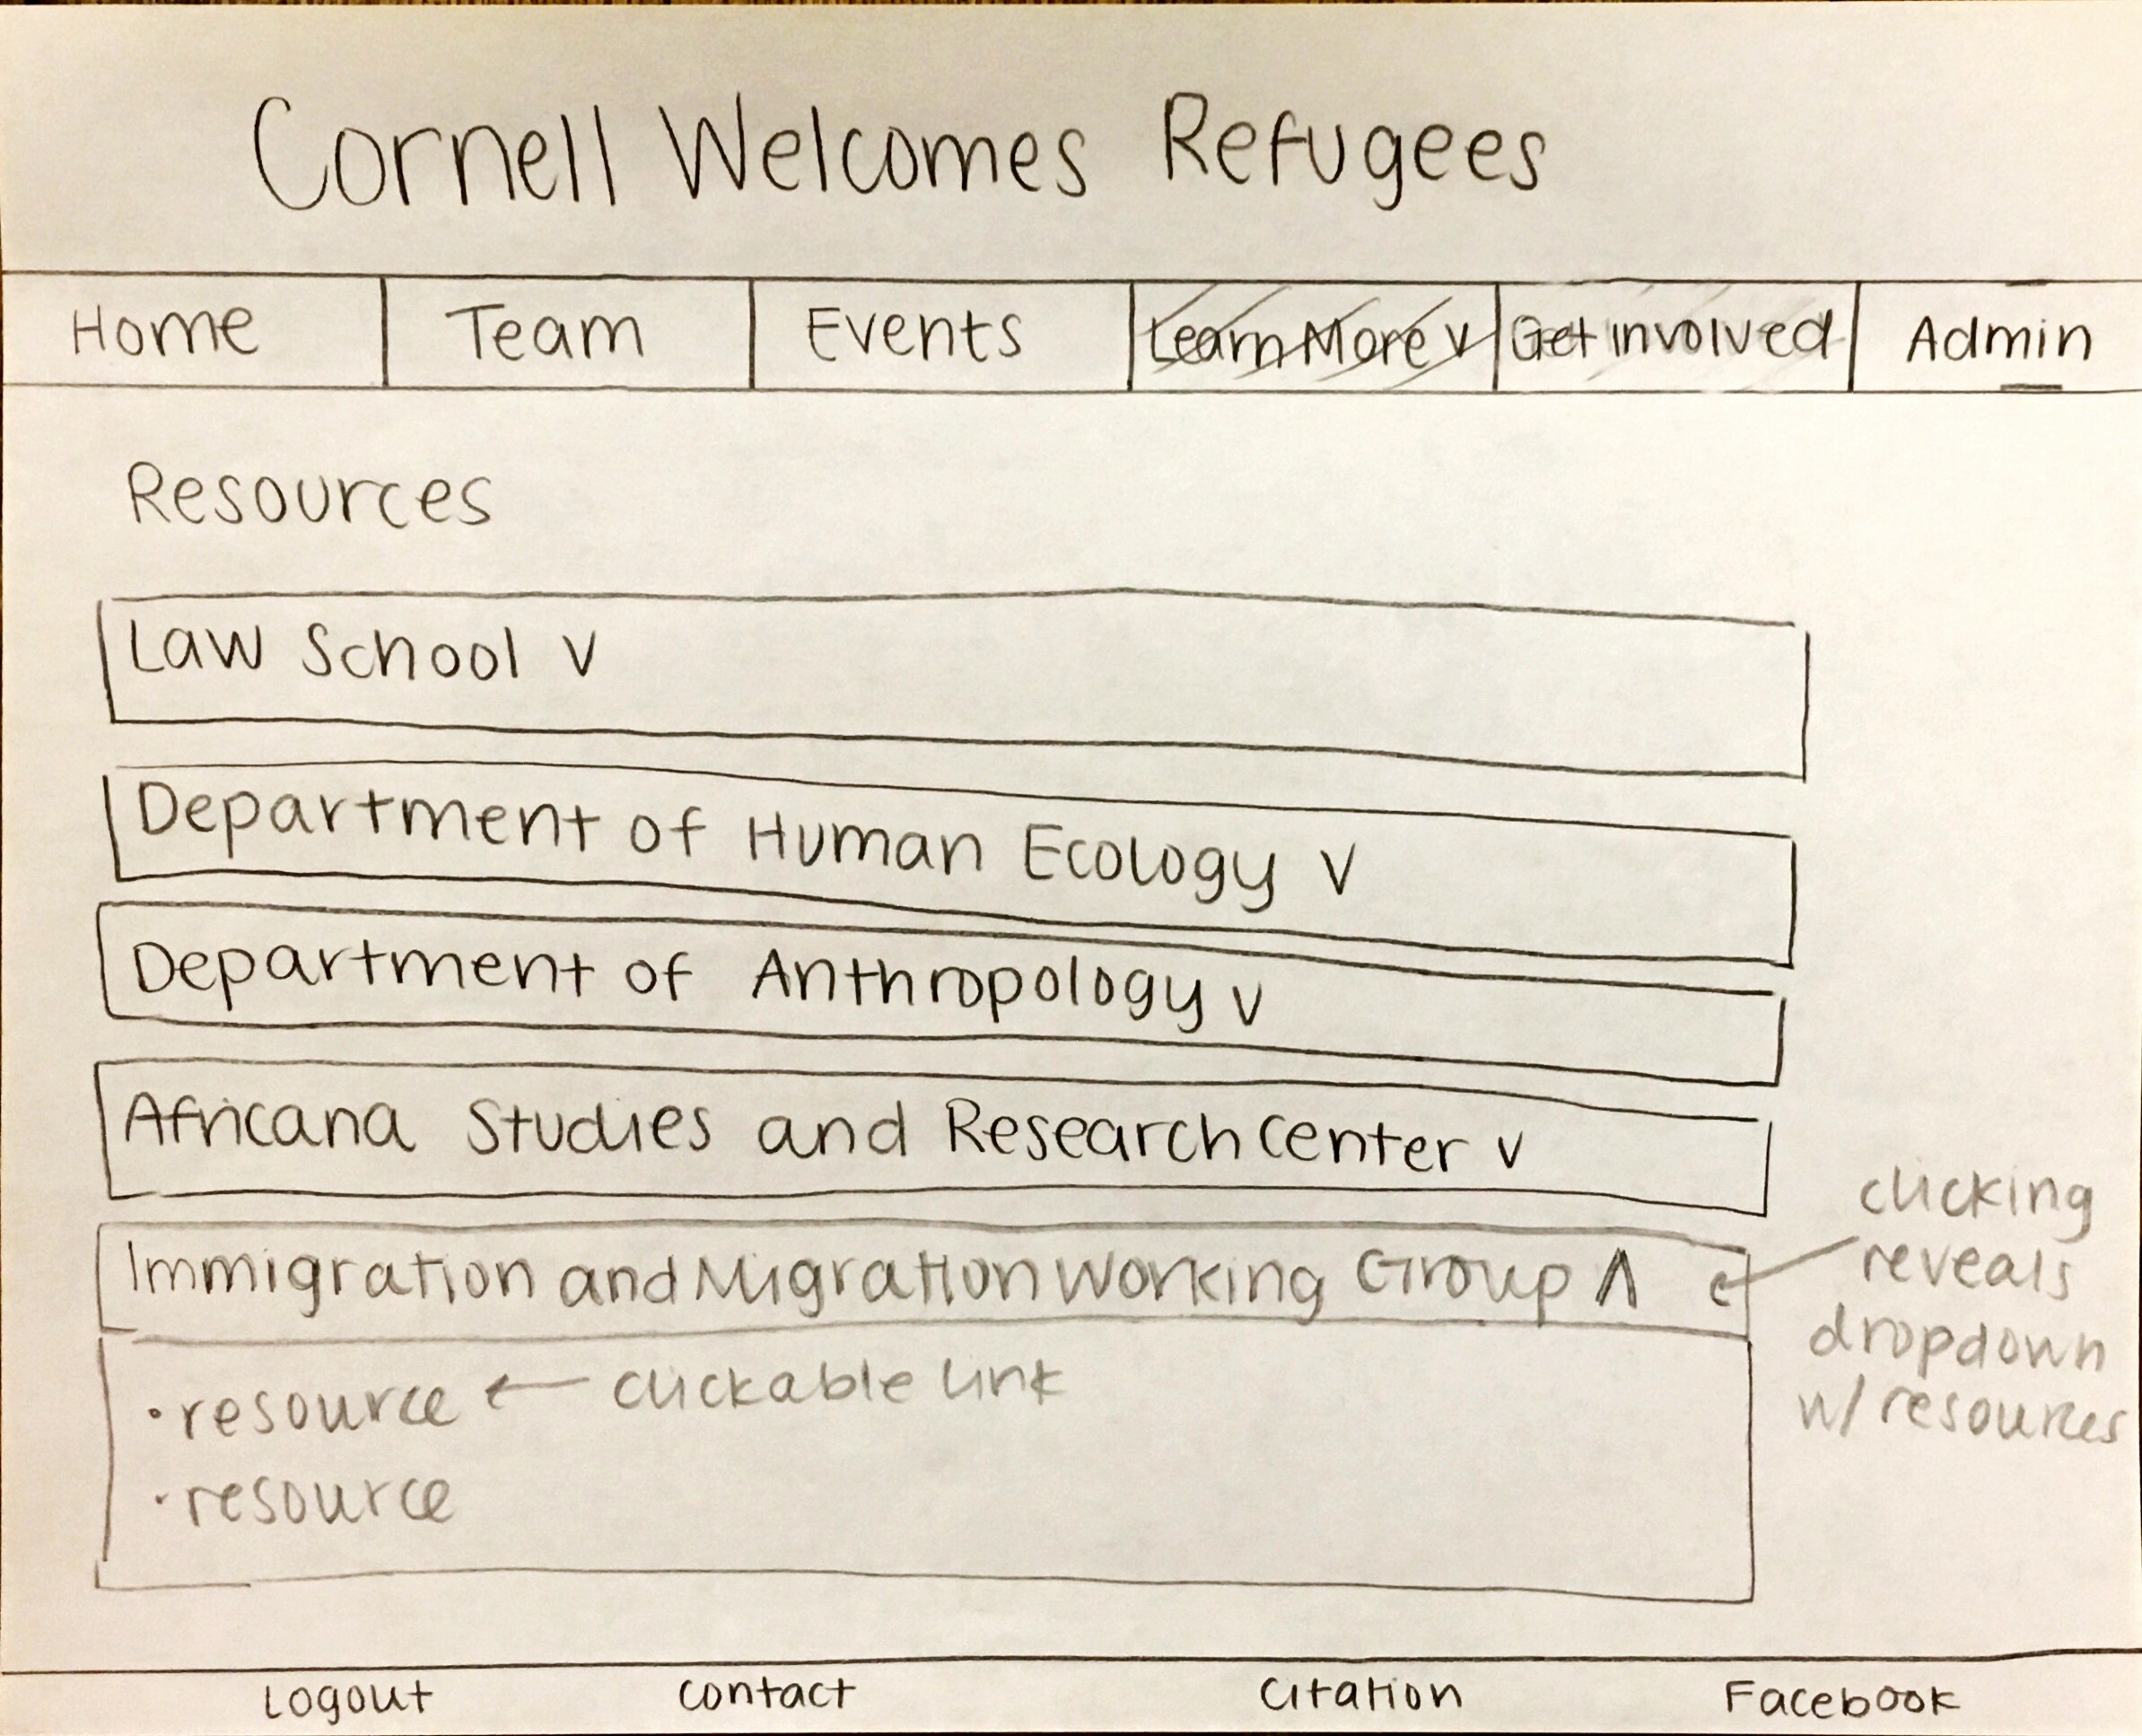 Cornell Welcomes Refugees
Home Team Events Learn More v Get involved Admin
Resources
Law School v
Department of Human Ecology v
Department of Anthropology v
Africana Studies and Research Center v
Immigration and Migration Working Group ʌ
clicking
reveals
dropdown
w/ resources
• resource ← clickable link
• resource
Logout contact Citation Facebook